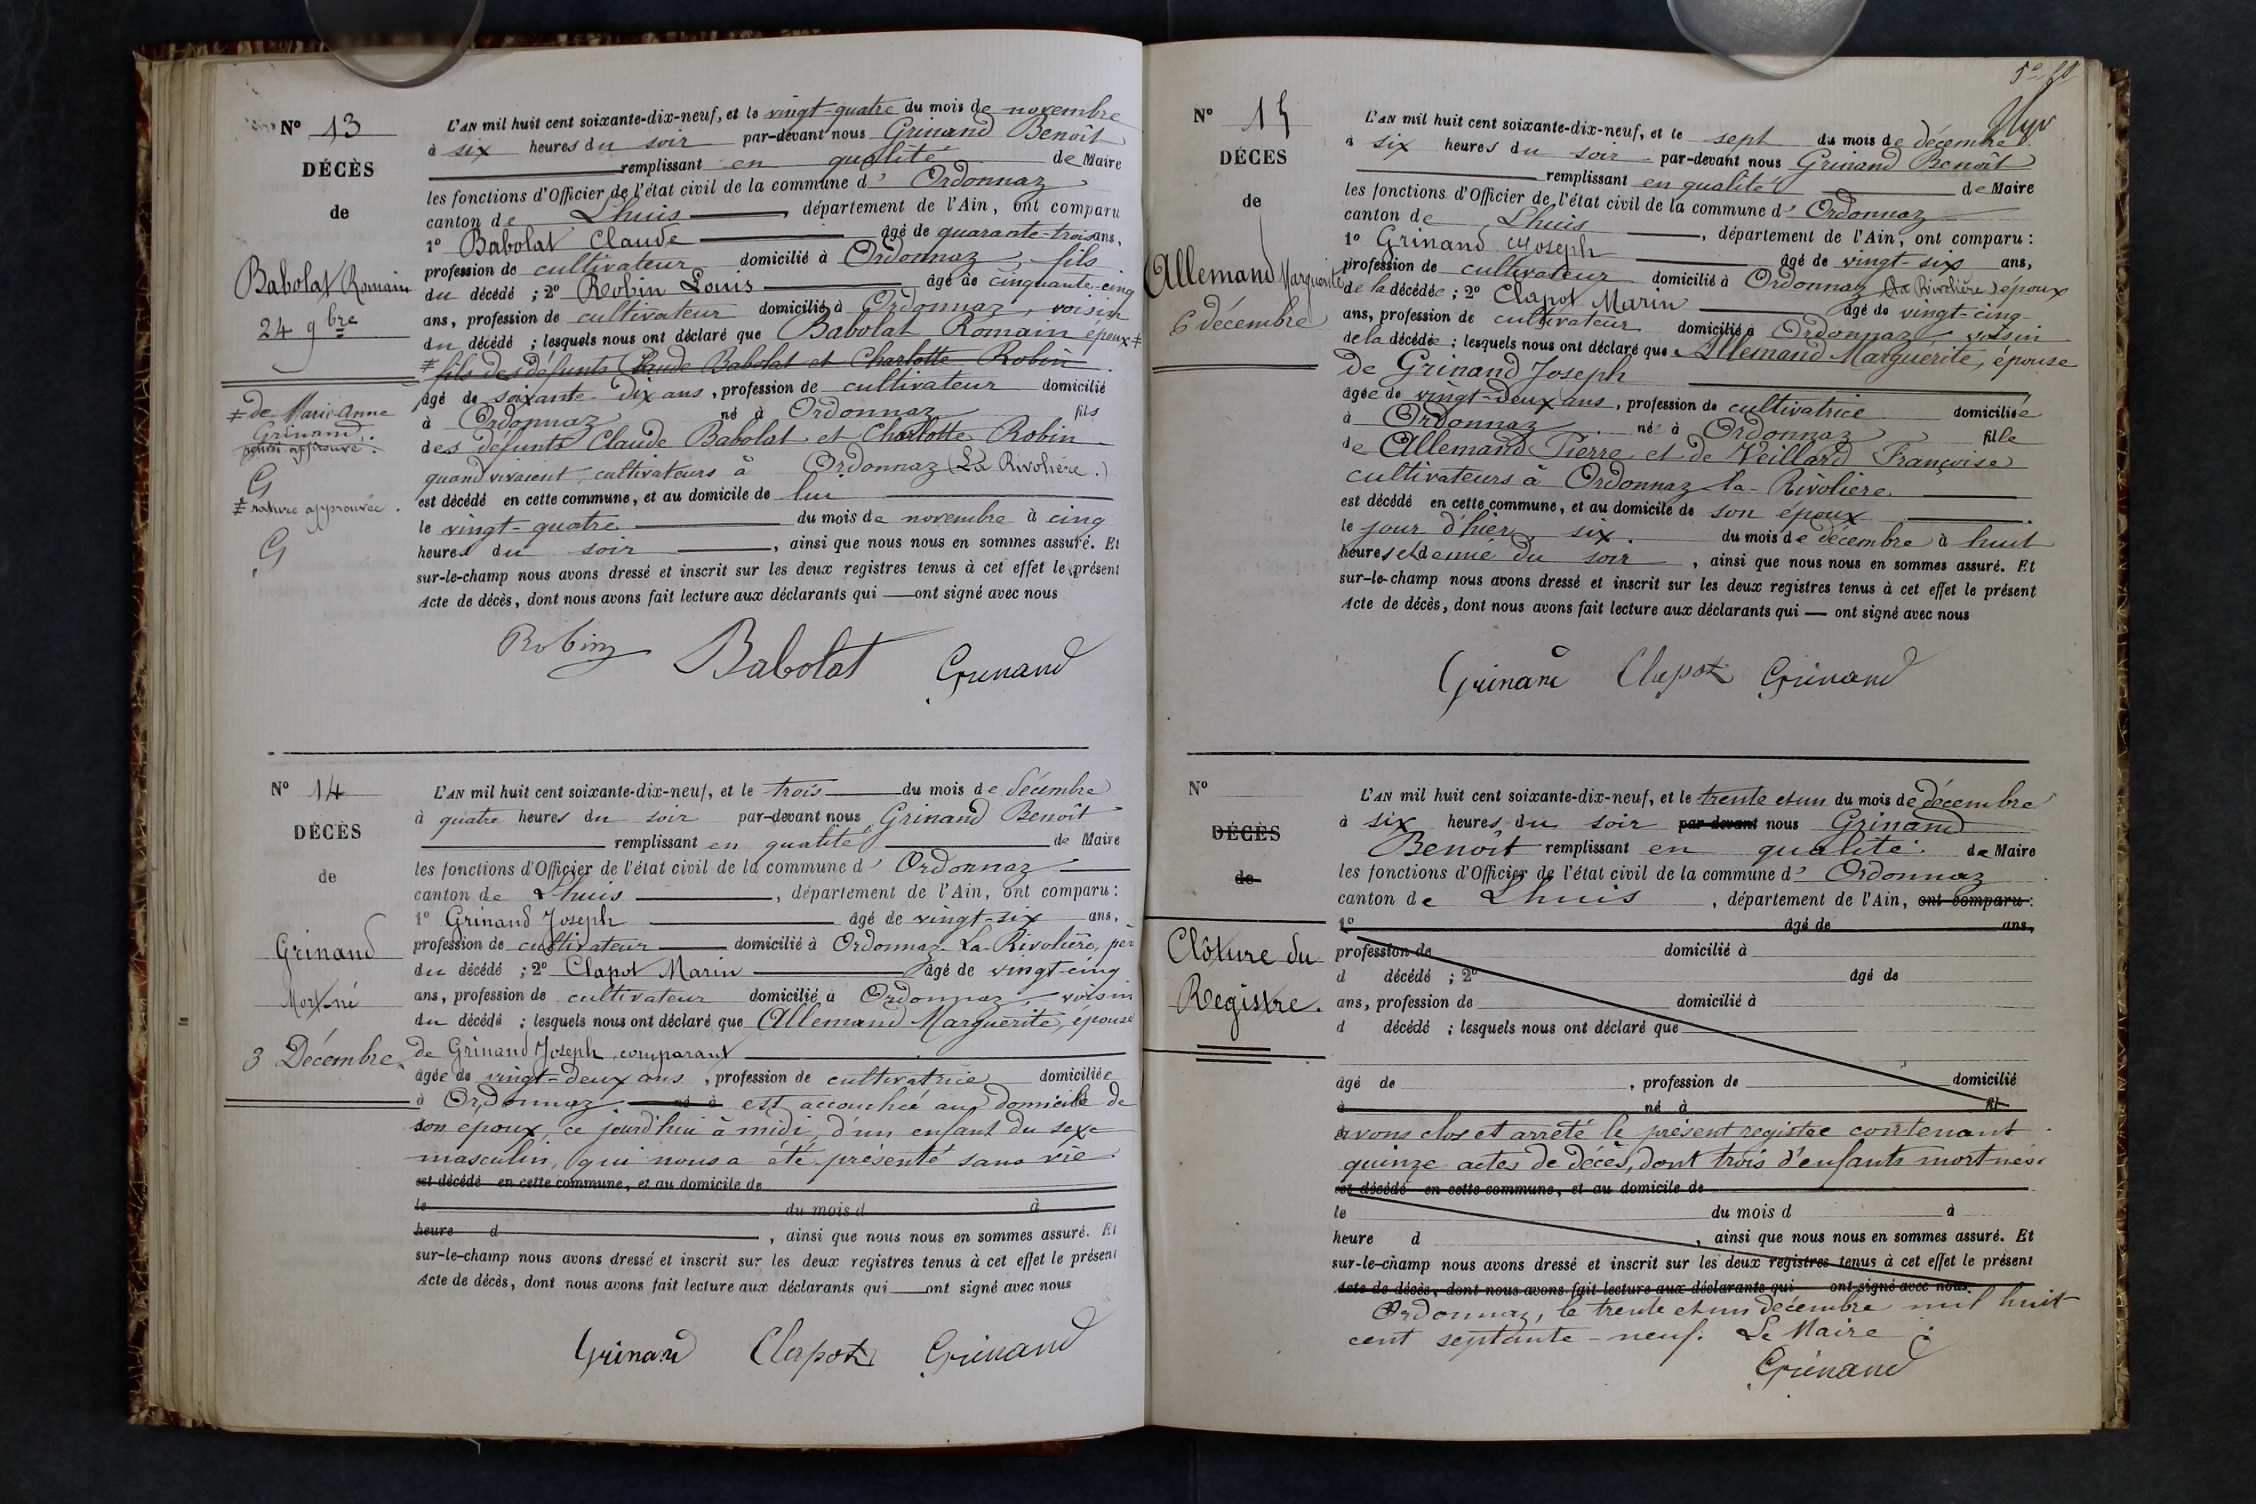 N° 13
DÉCÈS
de
Babolat Romain
24 9bre
≠ de Marie Anne
Grinand.
renvoi approuvé.
G
≠ rature approuvée.
G
L'AN mil huit cent soixante-dix-neuf, et le vingt-quatre du mois de novembre
à six heures du soir par-devant nous Grinand Benoît
remplissant en qualité de Maire
les fonctions d'Officier de l'état civil de la commune d' Ordonnaz
canton de Lhuis, département de l'Ain, ont comparu
1° Babolat Claude âgé de quarante-trois ans,
profession de cultivateur domicilié à Ordonnaz, fils
du décédé ; 2° Robin Louis âgé de cinquante-cinq
ans, profession de cultivateur domicilié à Ordonnaz, voisin
du décédé ; lesquels nous ont déclaré que Babolat Romain époux ≠
≠ fils des défunts Claude Babolat et Charlotte Robin
âgé de soixante-dix ans, profession de cultivateur domicilié
à Ordonnaz né à Ordonnaz fils
des défunts Claude Babolat et Charlotte Robin
quand vivaient cultivateurs à Ordonnaz (La Rivolière.)
est décédé en cette commune, et au domicile de lui
le vingt-quatre du mois de novembre à cinq
heures du soir, ainsi que nous nous en sommes assuré. Et
sur-le-champ nous avons dressé et inscrit sur les deux registres tenus à cet effet le présent
Acte de décès, dont nous avons fait lecture aux déclarants qui ont signé avec nous
Robin Babolat Grinand
N° 14
DÉCÈS
de
Grinand
Mort-né
3 Décembre.
L'AN mil huit cent soixante-dix-neuf, et le trois du mois de décembre
à quatre heures du soir par-devant nous Grinand Benoît
remplissant en qualité de Maire
les fonctions d'Officier de l'état civil de la commune d' Ordonnaz
canton de Lhuis, département de l'Ain, ont comparu :
1° Grinand Joseph âgé de vingt-six ans,
profession de cultivateur domicilié à Ordonnaz-La-Rivolière, père
du décédé ; 2° Clapot Marin âgé de vingt-cinq
ans, profession de cultivateur domicilié à Ordonnaz, voisin
du décédé ; lesquels nous ont déclaré que Allemand Marguerite, épouse
de Grinand Joseph comparant
âgée de vingt-deux ans, profession de cultivatrice domiciliée
à Ordonnaz né à est accouchée au domicile de
son époux, ce jourd'hui à midi, d'un enfant du sexe
masculin, qui nous a été présenté sans vie
est décédé en cette commune, et au domicile de
le du mois d à
heure d, ainsi que nous nous en sommes assuré. Et
sur-le-champ nous avons dressé et inscrit sur les deux registres tenus à cet effet le présent
Acte de décès, dont nous avons fait lecture aux déclarants qui ont signé avec nous
Grinand Clapot Grinand
N° 15
DÉCÈS
de
Allemand Marguerite
6 décembre
L'AN mil huit cent soixante-dix-neuf, et le sept du mois de décembre
à six heures du soir par-devant nous Grinand Benoît
remplissant en qualité de Maire
les fonctions d'Officier de l'état civil de la commune d' Ordonnaz
canton de Lhuis, département de l'Ain, ont comparu :
1° Grinand Joseph âgé de vingt-six ans,
profession de cultivateur domicilié à Ordonnaz (La Rivolière) époux
de la décédée ; 2° Clapot Marin âgé de vingt-cinq
ans, profession de cultivateur domicilié à Ordonnaz, voisin
de la décédée ; lesquels nous ont déclaré que Allemand Marguerite, épouse
de Grinand Joseph
âgée de vingt-deux ans, profession de cultivatrice domiciliée
à Ordonnaz né à Ordonnaz fille
de Allemand Pierre et de Veillard Françoise
cultivateurs à Ordonnaz-la-Rivolière
est décédé en cette commune, et au domicile de son époux
le jour d'hier, six. du mois de décembre à huit
heures et demie du soir, ainsi que nous nous en sommes assuré. Et
sur-le-champ nous avons dressé et inscrit sur les deux registres tenus à cet effet le présent
Acte de décès, dont nous avons fait lecture aux déclarants qui ont signé avec nous
Grinand Clapot Grinand
N°
DÉCÈS
de
Clôture du
Registre.
L'AN mil huit cent soixante-dix-neuf, et le trente et un du mois de décembre
à six heures du soir par-devant nous Grinand
Benoît remplissant en qualité de Maire
les fonctions d'Officier de l'état civil de la commune d' Ordonnaz
canton de Lhuis, département de l'Ain, ont comparu :
1° âgé de ans,
profession de domicilié à
d décédé ; 2° âgé de
ans, profession de domicilié à
d décédé ; lesquels nous ont déclaré que
âgé de, profession de domicilié
à né à fil
avons clos et arrêté le présent registre contenant
quinze actes de décès, dont trois d'enfants mort-nés.
est décédé en cette commune, et au domicile de
le du mois d à
heure d, ainsi que nous nous en sommes assuré. Et
sur-le-champ nous avons dressé et inscrit sur les deux registres tenus à cet effet le présent
Acte de décès, dont nous avons fait lecture aux déclarants qui ont signé avec nous.
Ordonnaz, le trente et un décembre mil huit
cent septante-neuf. Le Maire
Grinand